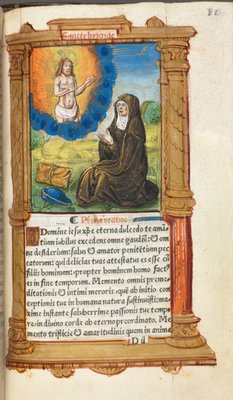 Prima oratio
O Domine iesu xp̄e eterna dulcedo te aman
tium iubilus excedens omne gaudiū: ⁊ om
ne desideriū: salus ⁊ amator penitētium pec
catorum: qui delicias tuas attestatus es esse cū
filiis hominum: propter hominem homo fact
es in fine temporum. Memento omnis preme
ditationis ⁊ intimi meroris: quē ab initio con
ceptionis tue in humana natura sustinuisti: ma
xime instante saluberrime passionis tue tempo
re in diuino corde ab eterno preordinato. Me
mento tristicie ⁊ amaritudinis quam in anima
D ii